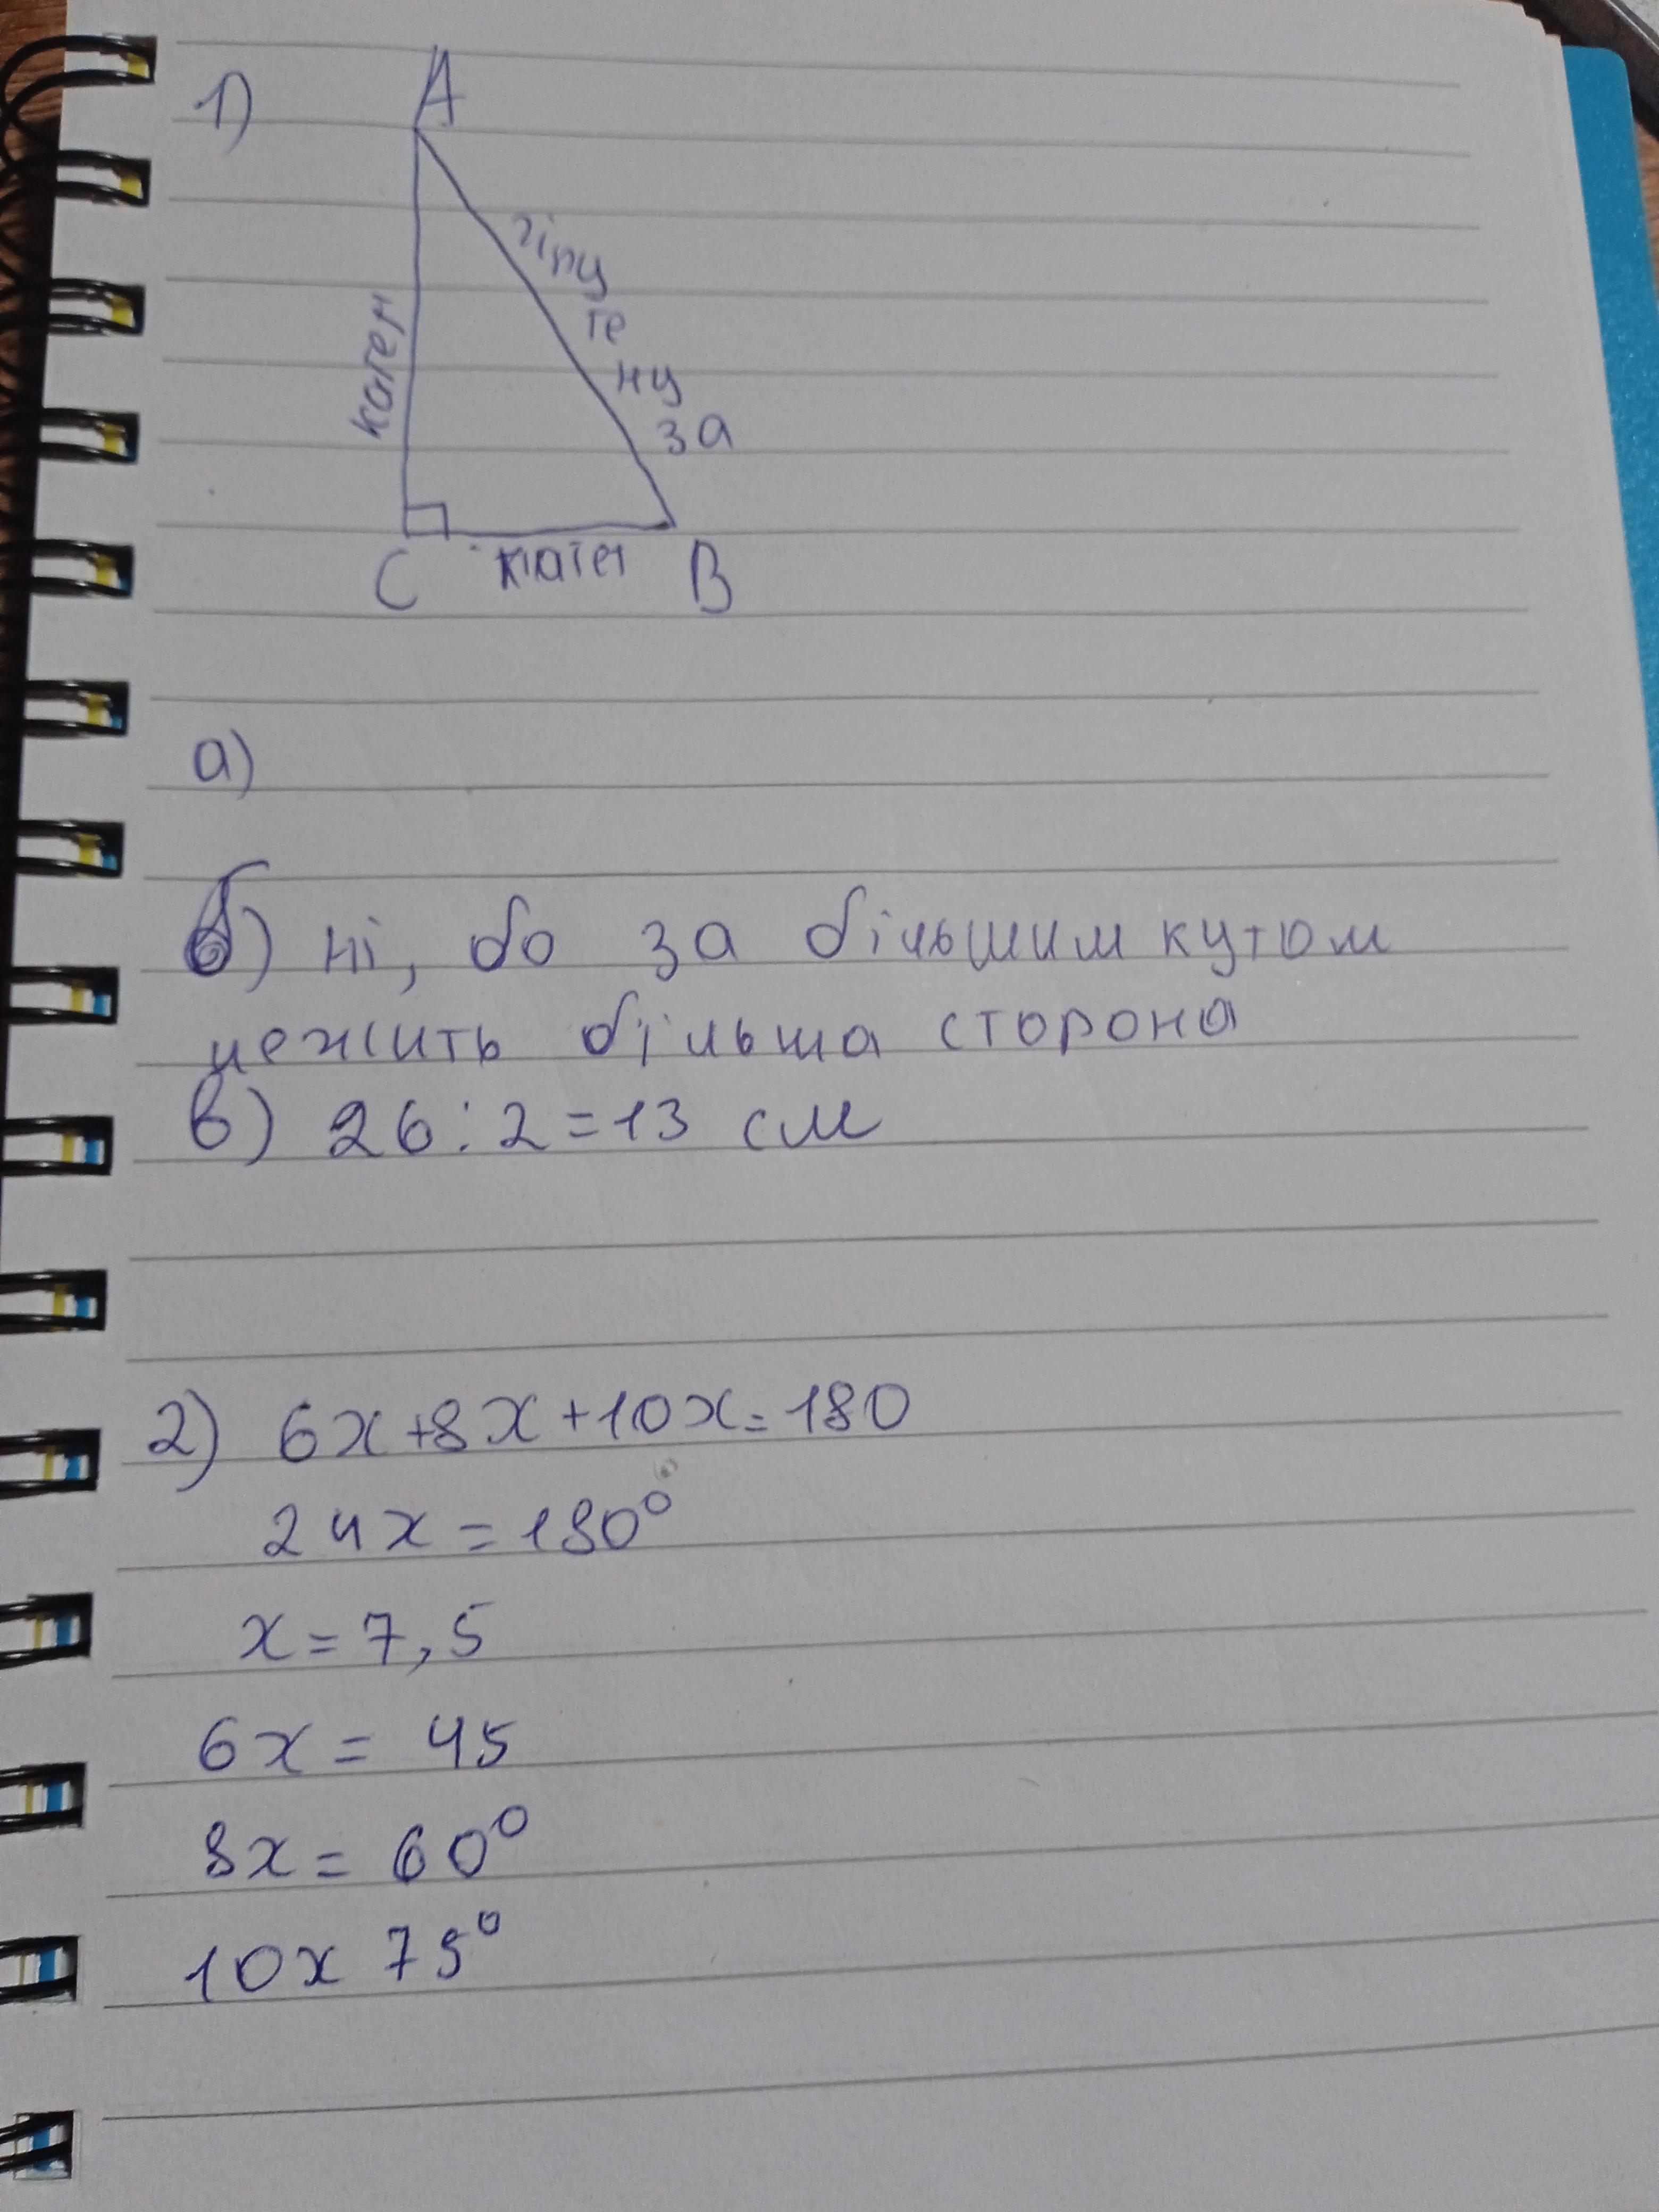 1)
A
гіпу
те
ну
за
катет
C катет B
а)
б) ні, бо за більшим кутом
лежить більша сторона
в) 26:2=13 см
2) 6x+8x+10x=180
24x=180°
x=7,5
6x= 45
8x= 60°
10x 75°